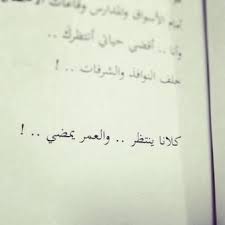 أمام الأسواق والمدارس وقاعات
وأنا .. أقضي حياتي أنتظرك ..
خلف النوافذ والشرفات .. !
كلانا ينتظر .. والعمر يمضي .. !